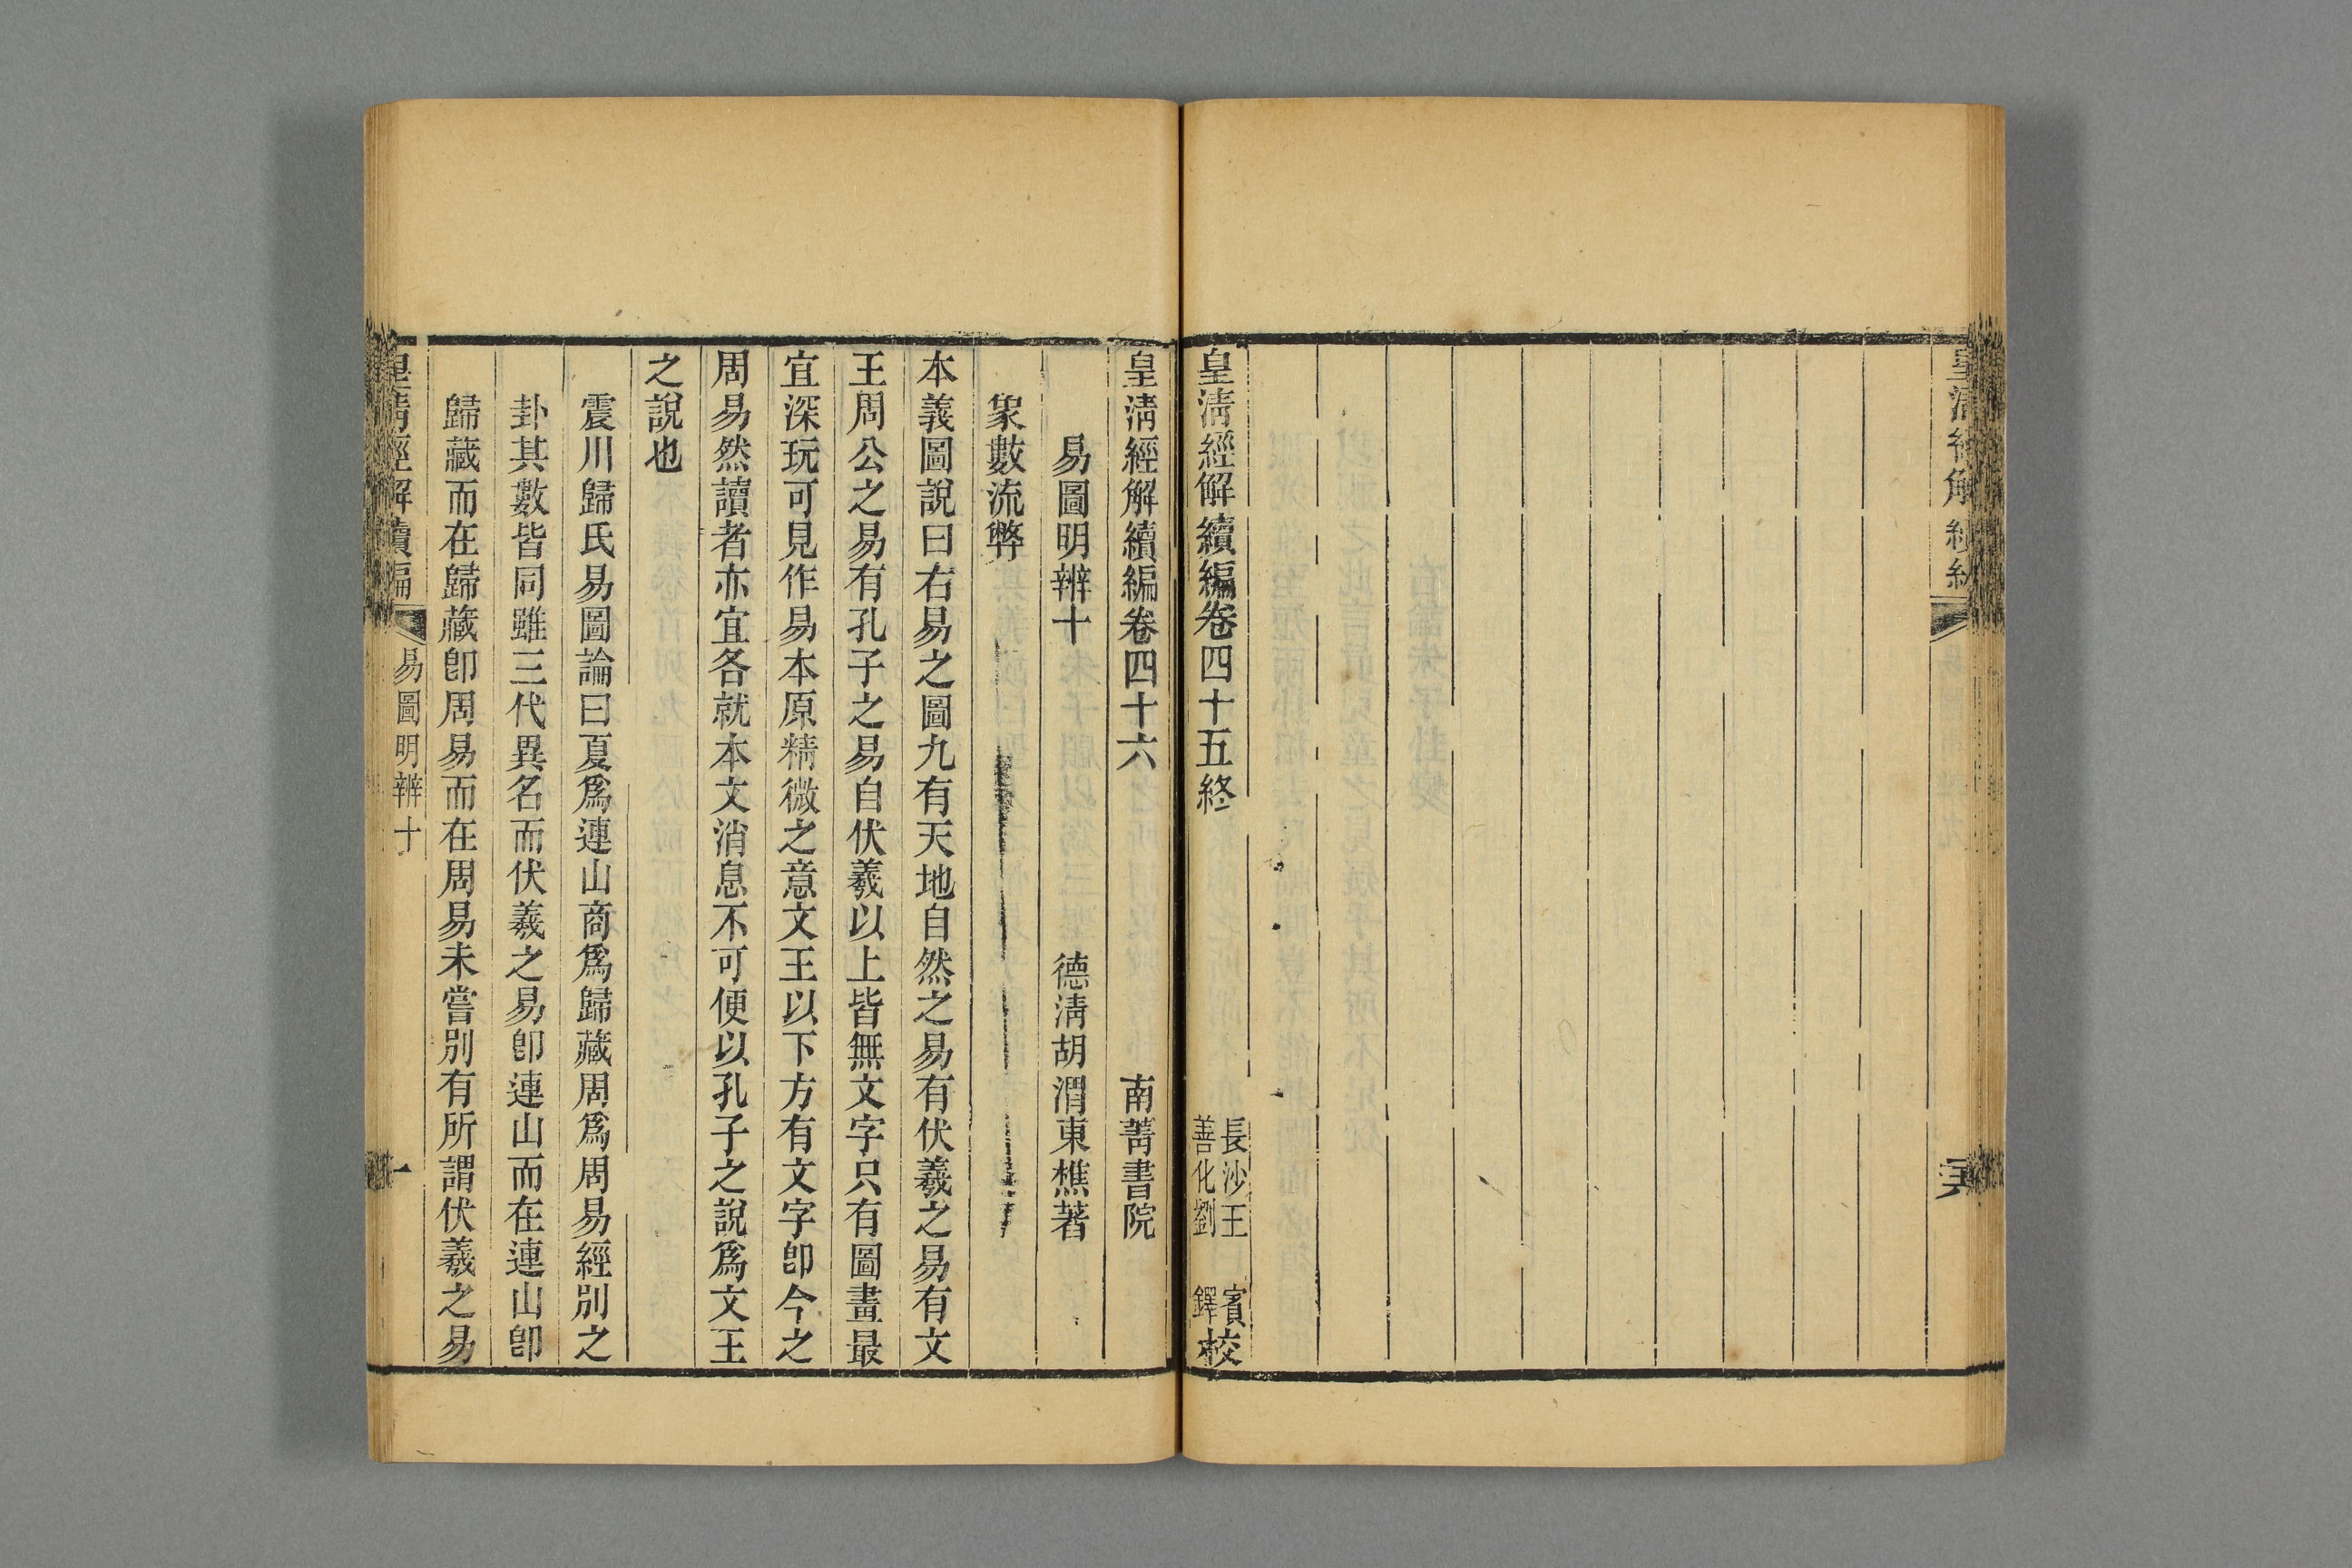 皇清經解續編卷四十五終
長沙王 賓
善化劉 鐸
校
皇清經解續編卷四十六 南菁書院
易圖明辨十 德清胡渭東樵著
象數流弊
本義圖說曰右易之圖九有天地自然之易有伏羲之易有文
王周公之易有孔子之易自伏羲以上皆無文字只有圖畫最
宜深玩可見作易本原精微之意文王以下方有文字卽今之
周易然讀者亦宜各就本文消息不可便以孔子之說爲文王
之說也
震川歸氏易圖論曰夏爲連山商爲歸藏周爲周易經別之
卦其數皆同雖三代異名而伏羲之易卽連山而在連山卽
歸藏而在歸藏卽周易而在周易未嘗別有所謂伏羲之易
皇清經解續編 易圖明辨十 一